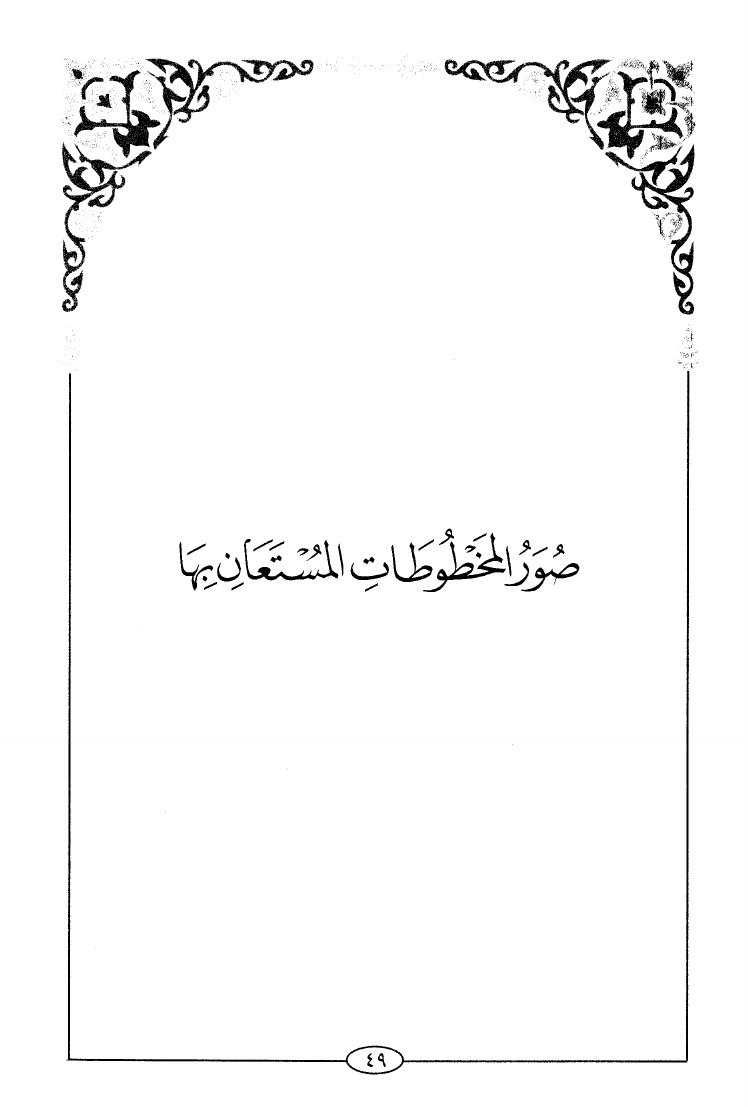 صُوَرُ المَخْطُوطَاتِ المُسْتَعَانِ بِهَا
٤٩